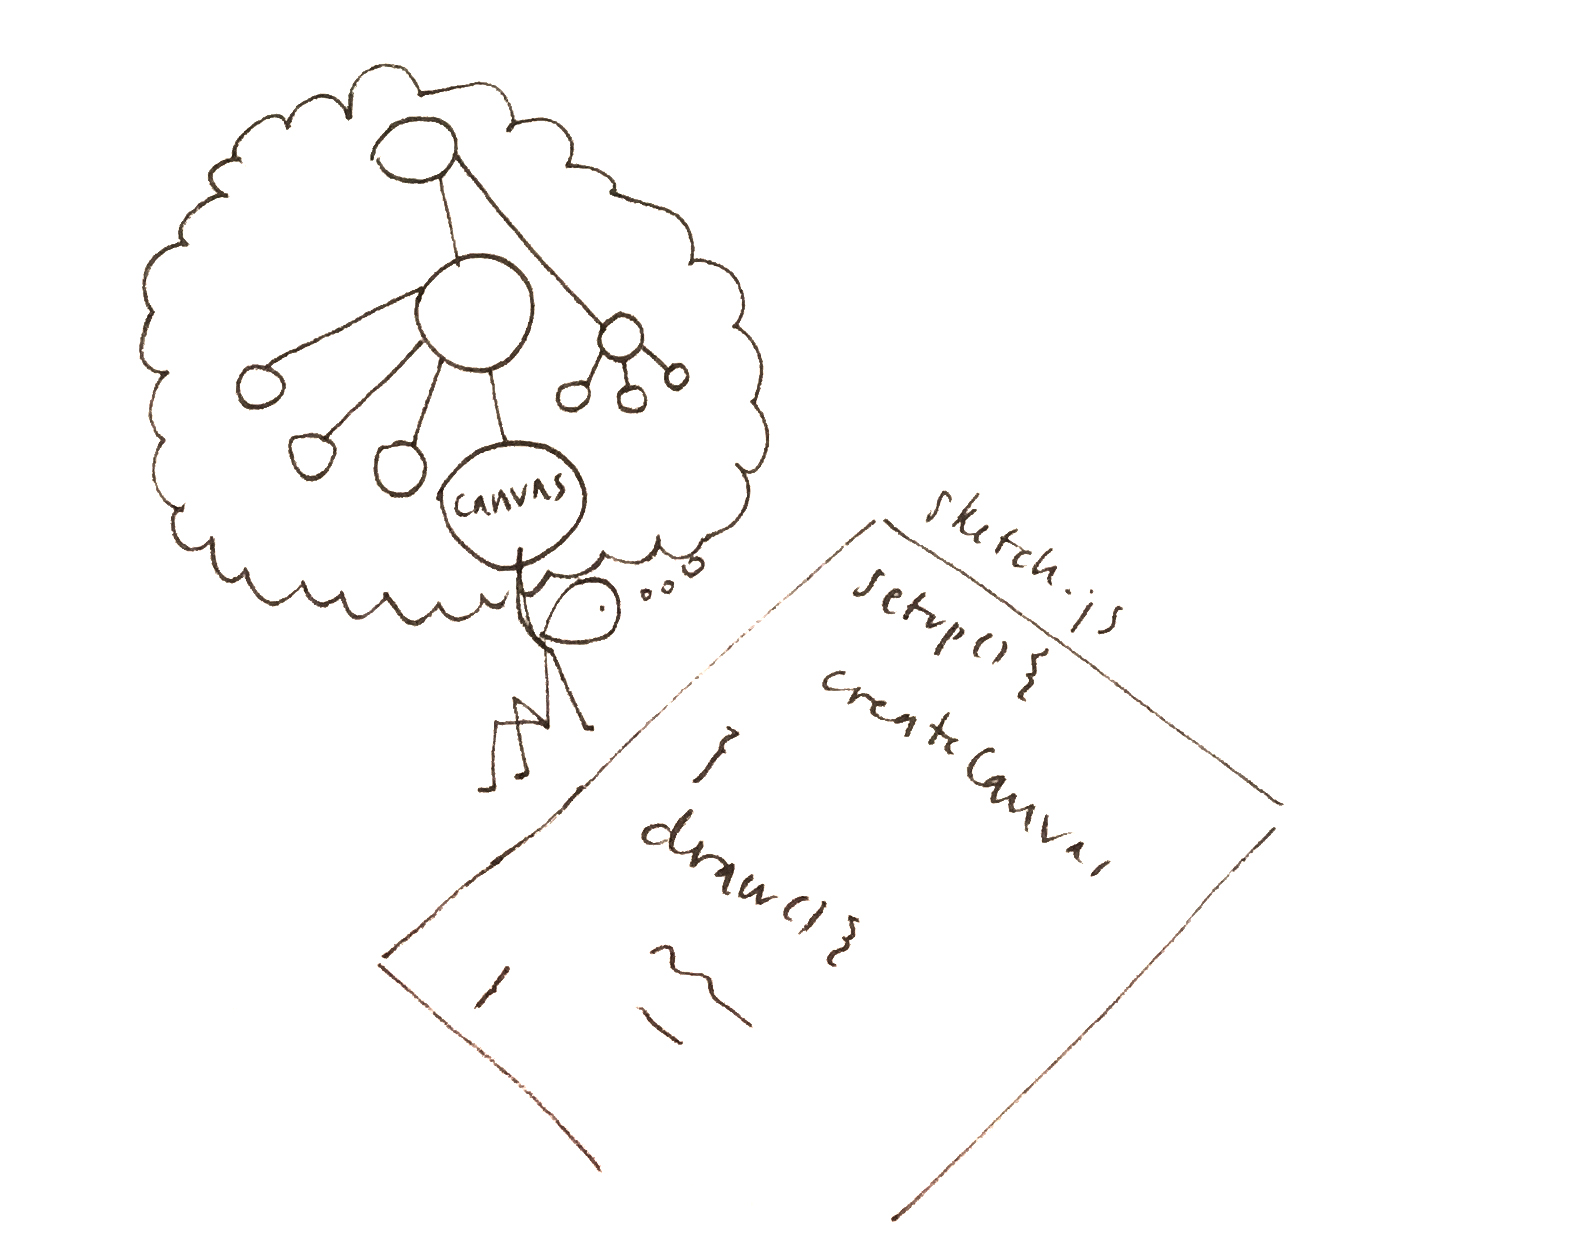 CANVAS
sketch.js
setup() {
createCanvas
}
draw() {